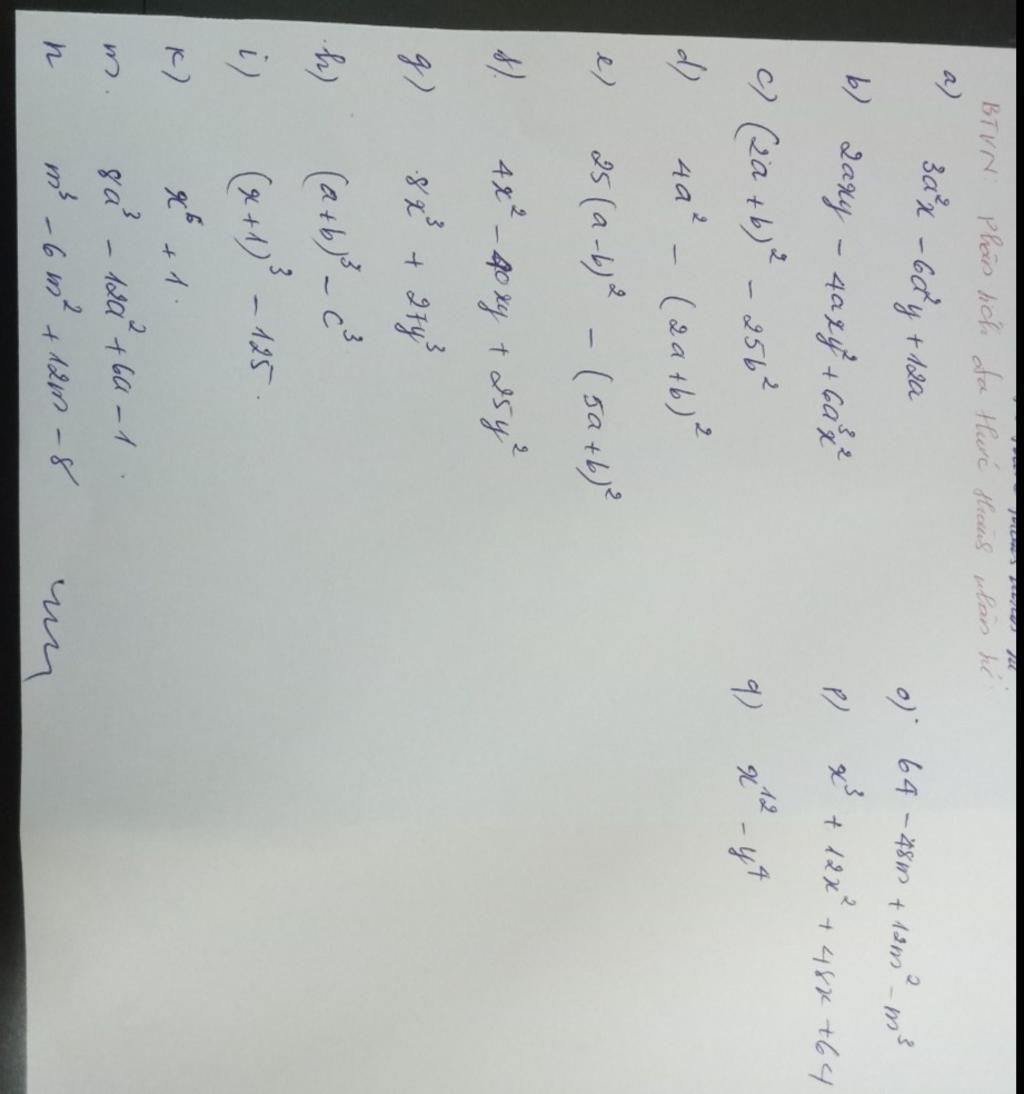 BTVN: Phân tích đa thức thành nhân tử
a) 3a²x - 6a²y + 12a
b) 2axy - 4axy² + 6a³x²
c) (2a + b)² - 25b²
d) 4a² - (2a + b)²
e) 25(a - b)² - (5a + b)²
f) 4x² - 20xy + 25y²
g) 8x³ + 27y³
h) (a + b)³ - c³
i) (x + 1)³ - 125
k) x⁶ + 1.
m. 8a³ - 12a² + 6a - 1.
n m³ - 6m² + 12m - 8
o) 64 - 48m + 12m² - m³
p) x³ + 12x² + 48x + 64
q) x¹² - y⁴